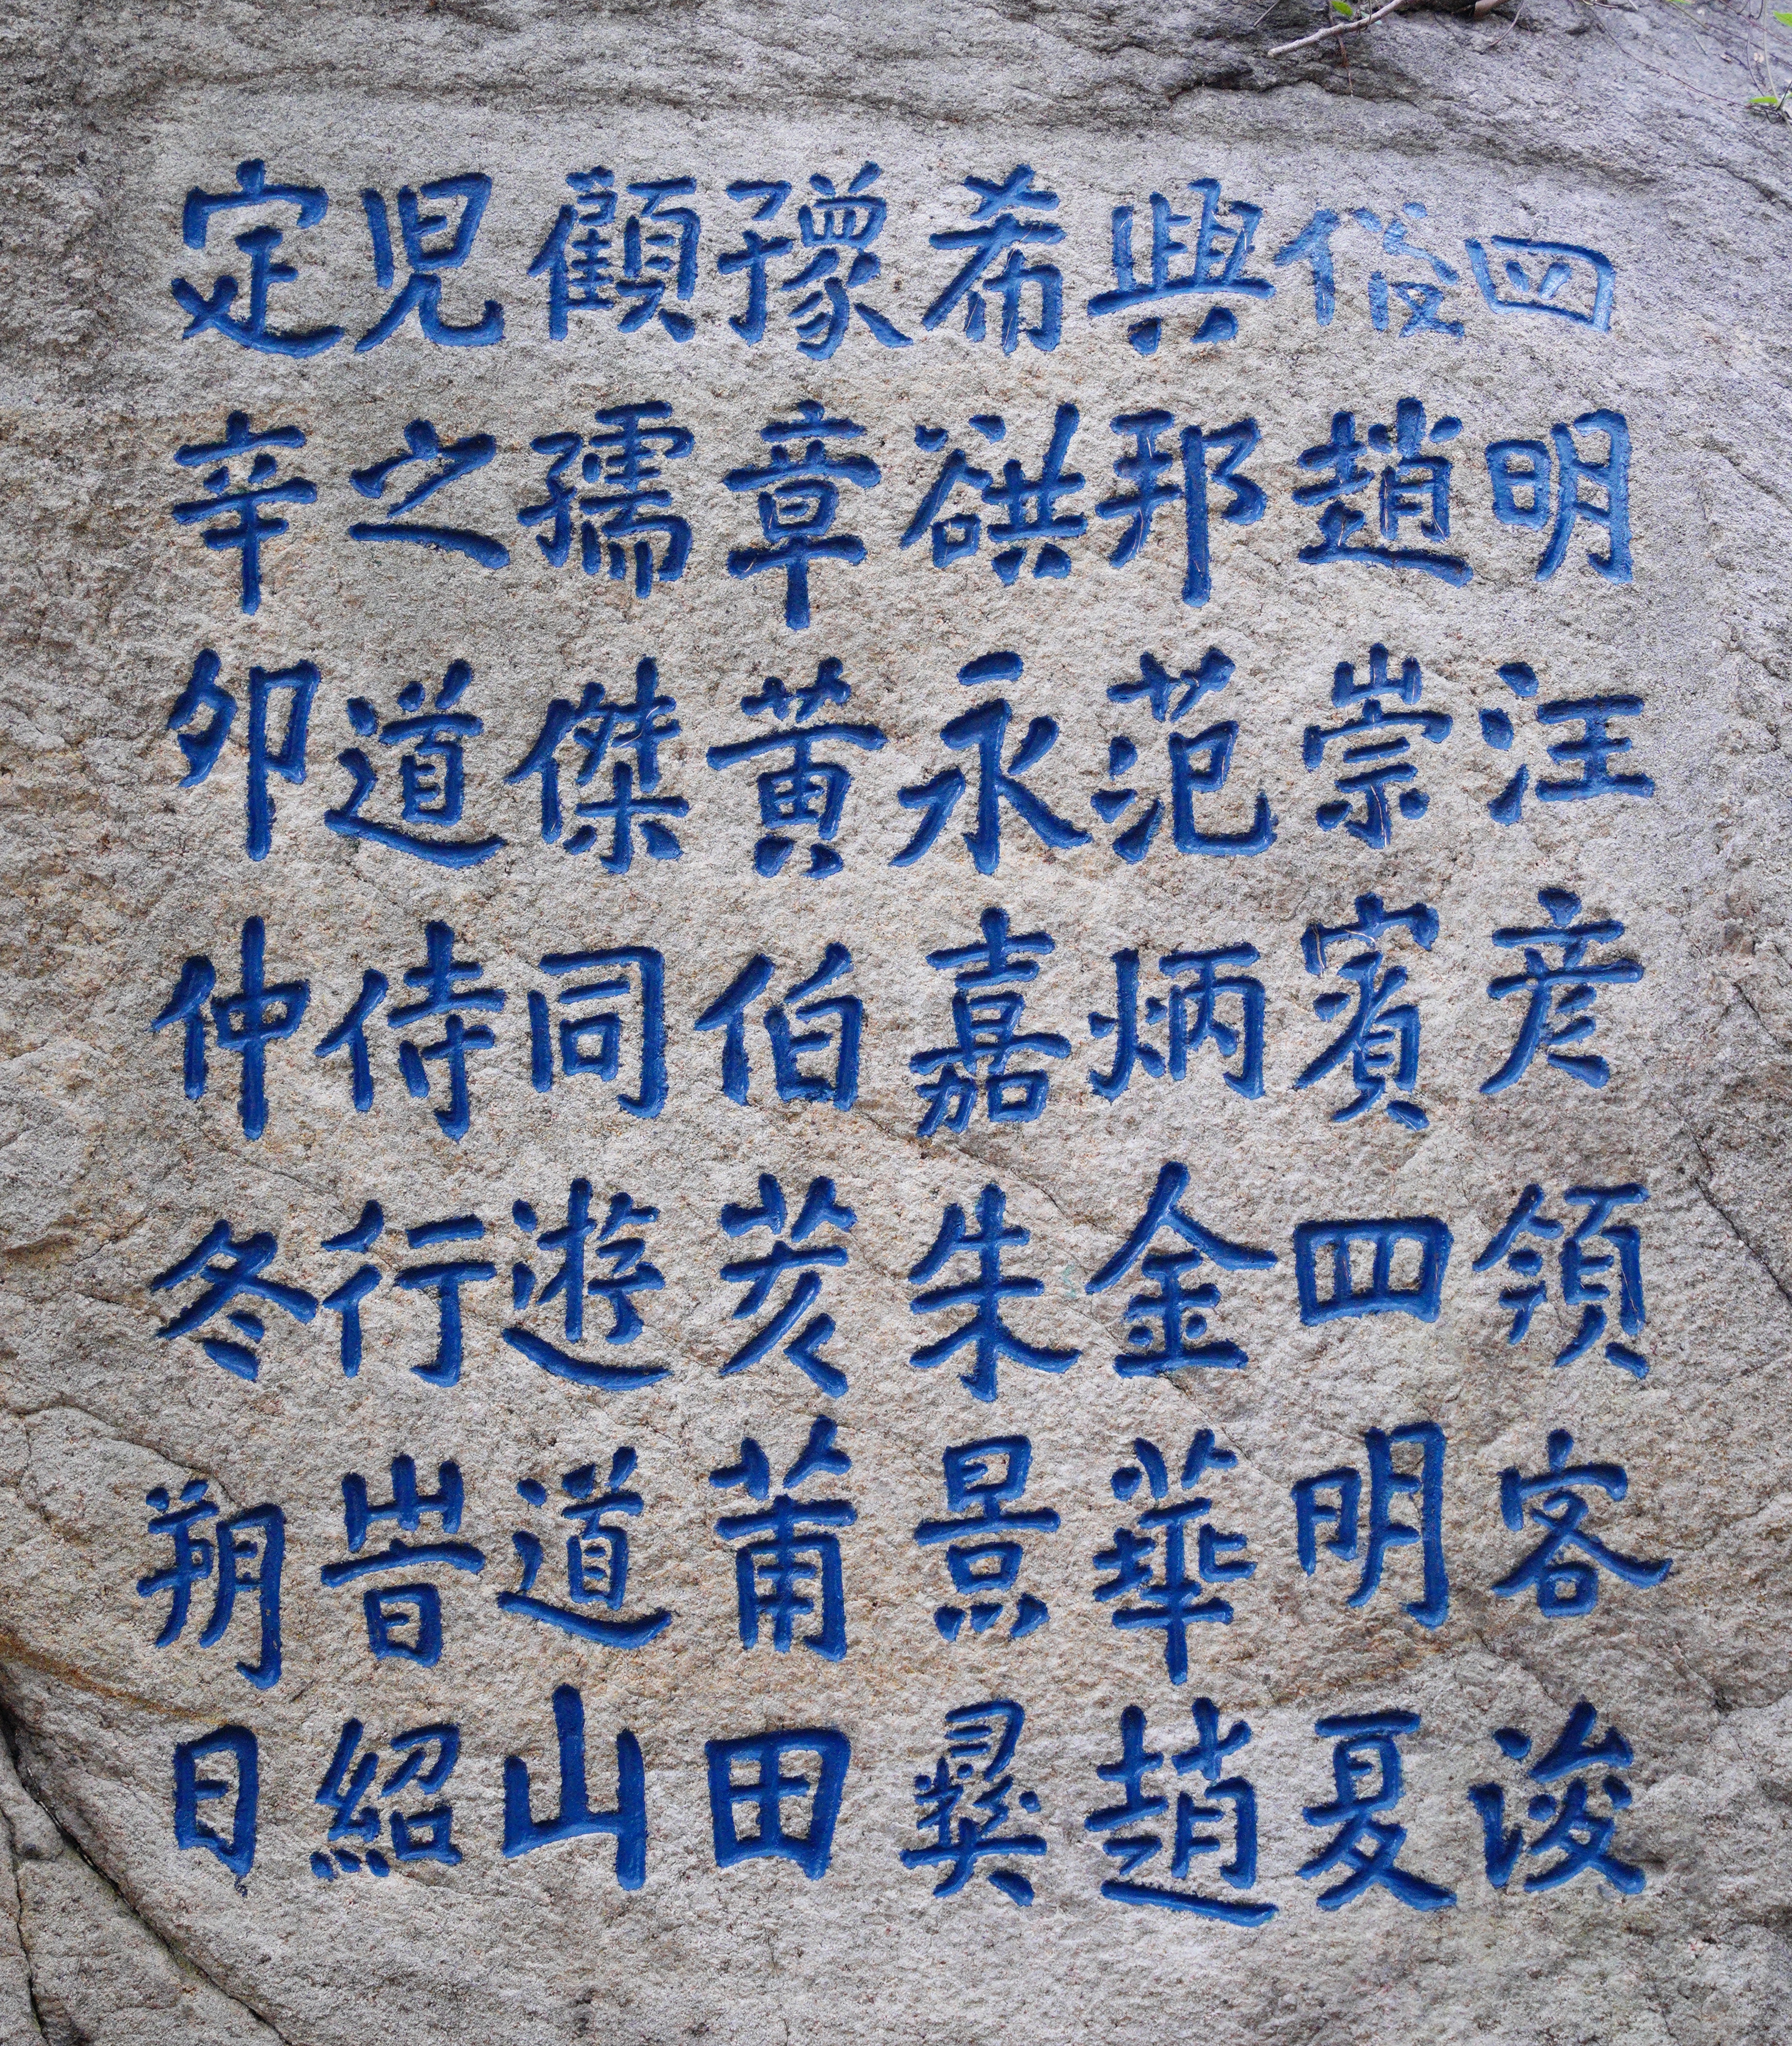 四明汪彦領客浚
俗趙崇賓四明夏
興邦范炳金華趙
希谼永嘉朱景彞
豫章黄伯茇莆田
顧孺傑同遊道山
児之道侍行旹紹
定辛卯仲冬朔日